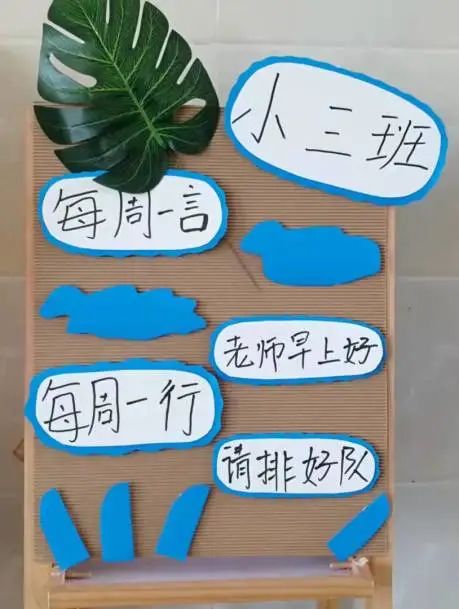 小三班
每周一言
老师早上好
每周一行
请排好队